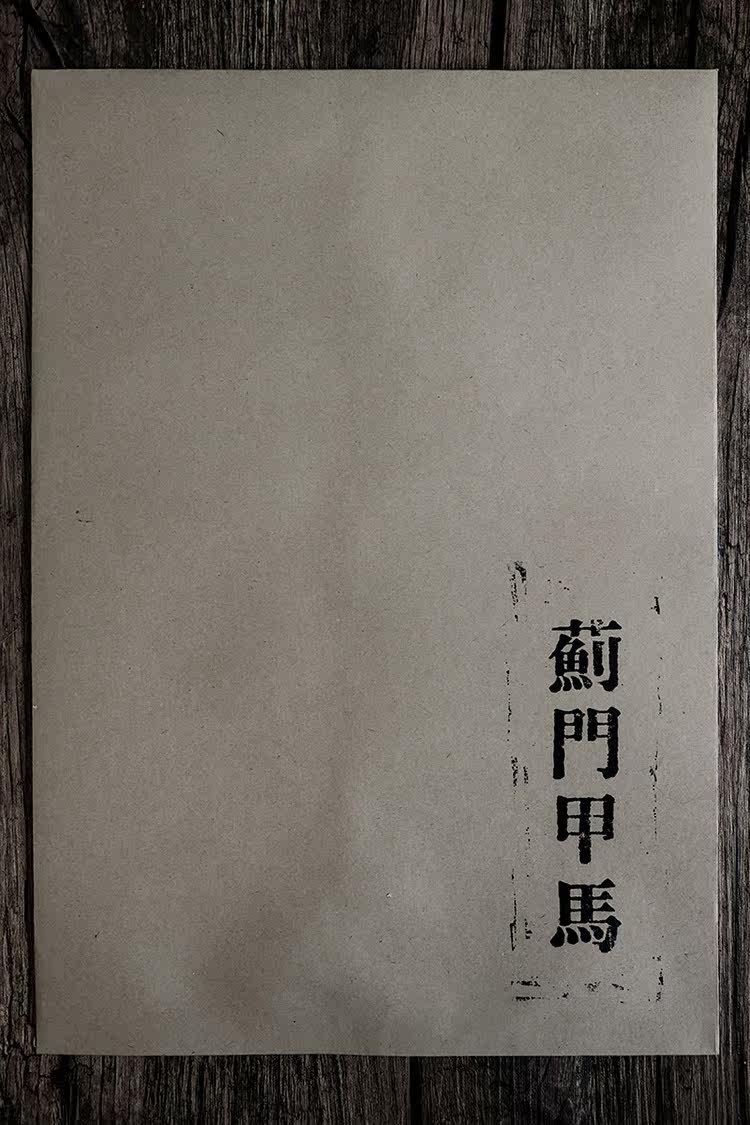 薊門甲馬